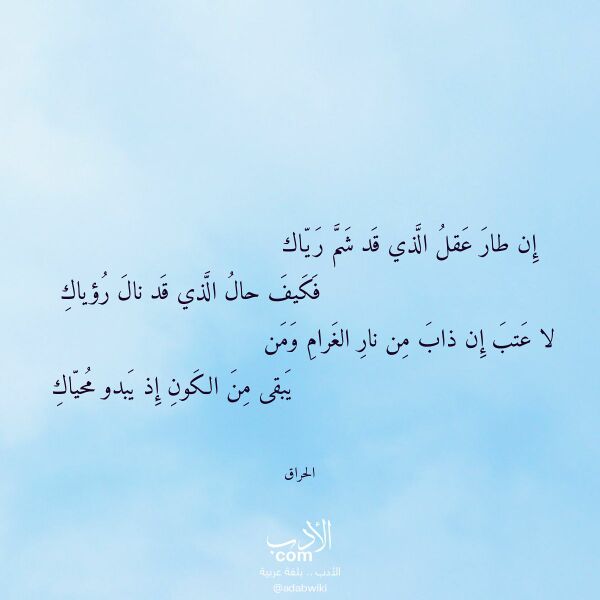 إِن طارَ عَقلُ الَّذي قَد شَمَّ رَيّاك
فَكَيفَ حالُ الَّذي قَد نالَ رُؤياكِ
لا عَتبَ إِن ذابَ مِن نارِ الغَرامِ وَمَن
يَبقى مِنَ الكَونِ إِذ يَبدو مُحيّاكِ
الحراق
الأدب
.com
الأدب .. بلغة عربية
@adabwiki